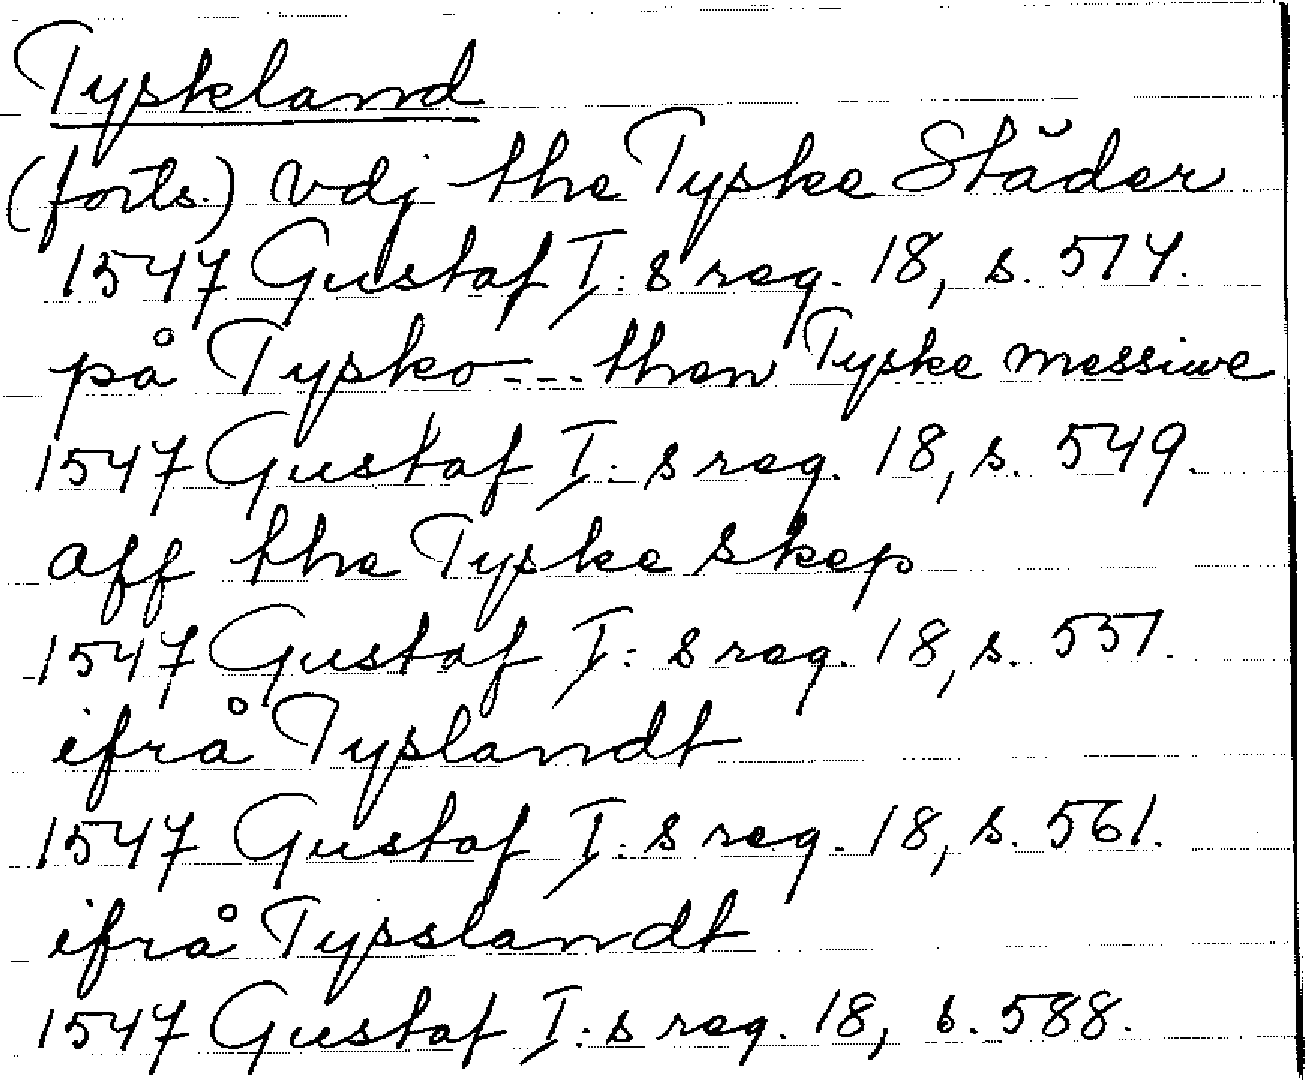 Tyskland
(forts.) vdj the Tyske Stăder
1547 Gustaf I:s reg. 18, s. 514.
på Tysko --- then Tyske messiwe
1547 Gustaf I:s reg. 18, s. 549.
aff the Tyske skep
1547 Gustaf I:s reg. 18, s. 551.
ifrå Tyslandt
1547 Gustaf I:s reg. 18, s. 561.
ifrå Tysslandt
1547 Gustaf I:s reg. 18, s. 588.